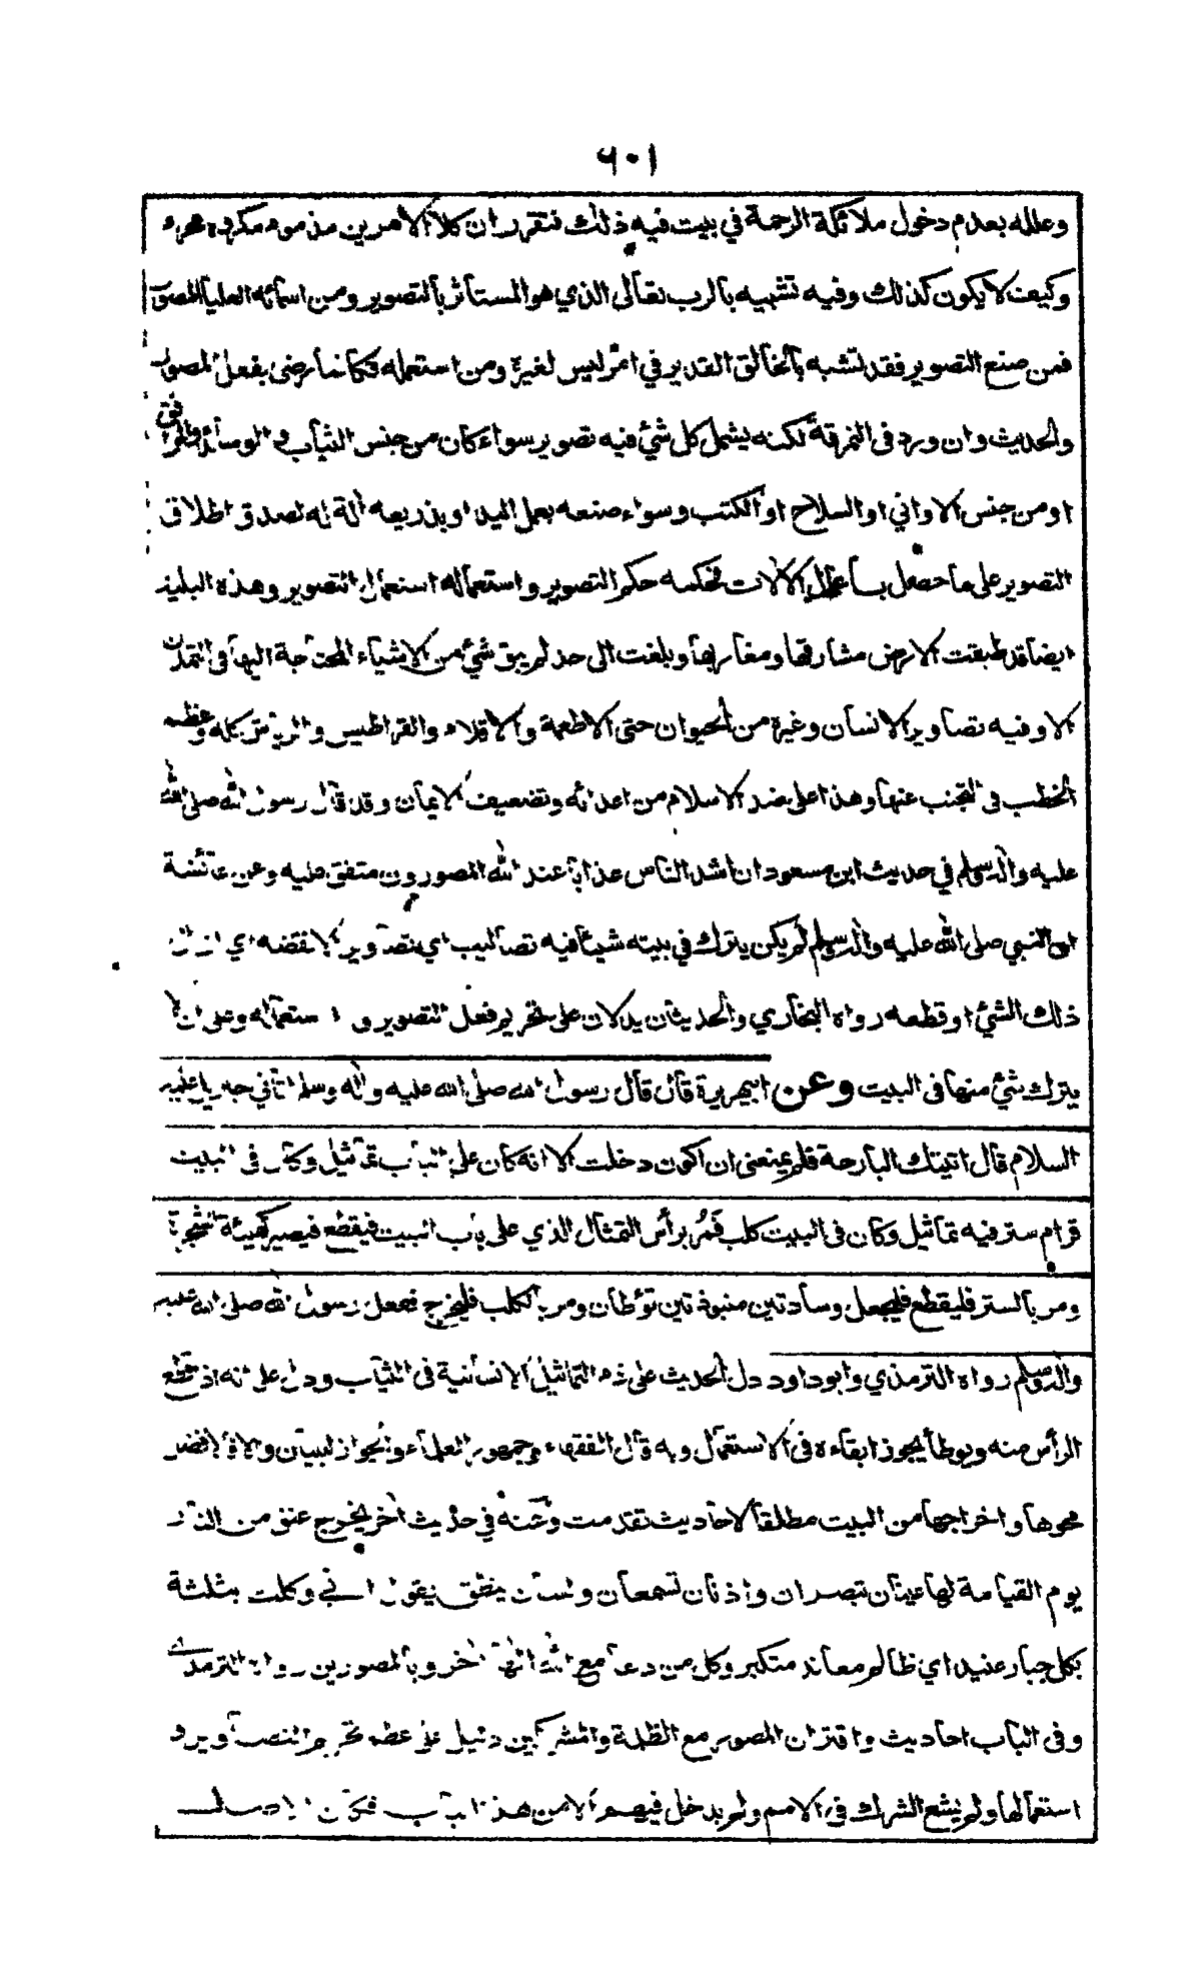 ٦٠١
وعلله بعدم دخول ملائكة الرحمة في بيت فيه ذلك فتقرر ان كلا الامرين مذموم مكروه محرم
وكيف لا يكون كذلك وفيه تشبيه بالرب تعالى الذي هو المستأثر بالتصوير ومن اسمائه العليا المصور
فمن صنع التصوير فقد تشبه بالخالق القدير في امر ليس لغيره ومن استعمله فكانما رضى بفعل المصور
والحديث وان ورد في النمرقة لكنه يشمل كل شئ فيه تصوير سواء كان من جنس الثياب و الوسائد والمرافق
او من جنس الاواني او السلاح او الكتب وسواء صنعه بعمل اليد او بذريعه الة له لصدق اطلاق
التصوير على ما حصل باعمال الآلات فحكمه حكم التصوير واستعماله استعمال التصوير وهذه البلية
ايضا قد طبقت الارض مشارقها ومغاربها وبلغت الى حد لم يبق شئ من الاشياء المحتاجة اليها في التمدن
الا وفيه تصاوير الانسان وغيره من الحيوان حتى الاطعمة والاقلام والقراطيس و كله وعظم
الخطب في التجنب عنها وهذا على ضد الاسلام من اعدائه وتضعيف الايمان وقد قال رسول الله صلى الله
عليه واله وسلم في حديث ابن مسعود ان اشد الناس عذابا عند الله المصورون متفق عليه وعن عائشة
ان النبي صلى الله عليه واله وسلم لم يكن يترك في بيته شيئا فيه تصاليب اي تصاوير الا نقضه اي ازال
ذلك الشئ او قطعه رواه البخاري والحديثان يدلان على تحريم فعل التصوير و استعماله وعلى ان لا
يترك شئ منها في البيت وعن ابي هريرة قال قال رسول الله صلى الله عليه واله وسلم اتاني جبريل عليه
السلام قال اتيتك البارحة فلم يمنعني ان اكون دخلت الا انه كان على الباب تماثيل وكان في البيت
قرام ستر فيه تماثيل وكان في البيت كلب فمر برأس التمثال الذي على باب البيت فيقطع فيصير كهيئة الشجرة
ومر بالستر فليقطع فليجعل وسادتين منبوذتين توطأن ومر بالكلب فليخرج ففعل رسول الله صلى الله عليه
واله وسلم رواه الترمذي وابو داود دل الحديث على ذم التماثيل الانسانية في الثياب ودل على انه اذا قطع
الرأس منه ويوطأ يجوز ابقاءه في الاستعمال وبه قال الفقهاء وجمهور العلماء والجواز لبيان والا فالافضل
محوها واخراجها من البيت مطلقا لاحاديث تقدمت وعنه في حديث اخر يخرج عنق من النار
يوم القيامة لها عينان تبصران واذنان تسمعان ولسان ينطق يقول اني وكلت بثلثة
بكل جبار عنيد اي ظالم معاند متكبر وكل من دعا مع الله الها اخر وبالمصورين رواه الترمذي
وفي الباب احاديث واقتران المصور مع الظلمة والمشركين دليل على عظم تحريم التصاوير و
استعمالها ولم يشع الشرك في الامم ولم يدخل فيهم الا من هذا الباب فكان